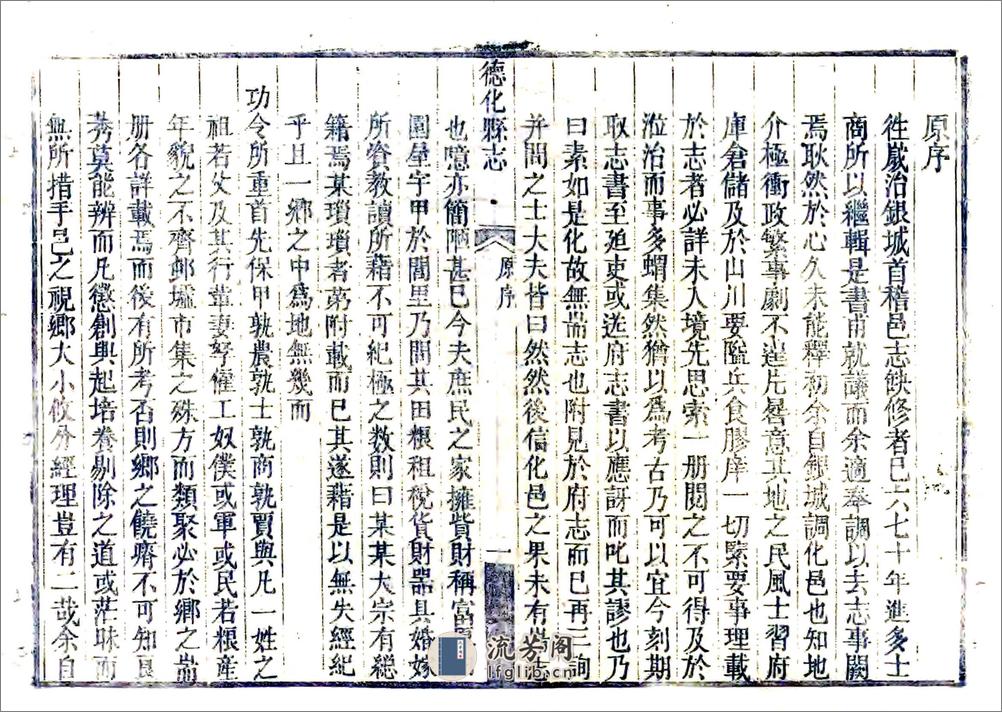 原序
徃嵗治銀城首稽邑志飫修者已六七十年進多士
商所以繼輯是書甫就議而余適奉調以去志事闕
焉耿然於心久未能釋初余自銀城調化邑也知地
介極衝政繁事劇不遑片晷意其地之民風士習府
庫倉儲及於山川要隘兵食膠庠一切緊要事理載
於志者必詳未入境先思索一册閱之不可得及於
涖治而事多蝟集然猶以為考古乃可以宜今刻期
取志書至廼吏或送府志書以應訝而叱其謬也乃
曰素如是化故無耑志也附見於府志而已再三詢
并問之士大夫皆曰然然後信化邑之果未有耑志
德化縣志
原序
一
也噫亦簡陋甚已今夫庶民之家擁貲財稱富
園屋宇甲於閭里乃問其田粮租稅貨財器具婚嫁
所資教讀所藉不可紀極之数則曰某某大宗有總
籍焉某瑣瑣者第附載而已其遂藉是以無失經紀
乎且一鄉之中為地無幾而
功令所重首先保甲孰農孰士孰商孰賈與凡一姓之
祖若父及其行輩妻孥傭工奴僕或軍或民若粮產
年貌之不齊邨墟市集之殊方而類聚必於鄉之耑
册各詳載焉而後有所考否則鄉之饒瘠不可知良
莠莫能辨而凡懲創興起培養剔除之道或茫昧而
無所措手邑之視鄉大小攸分經理豈有二哉余自
流芳阁
lfglib.cn